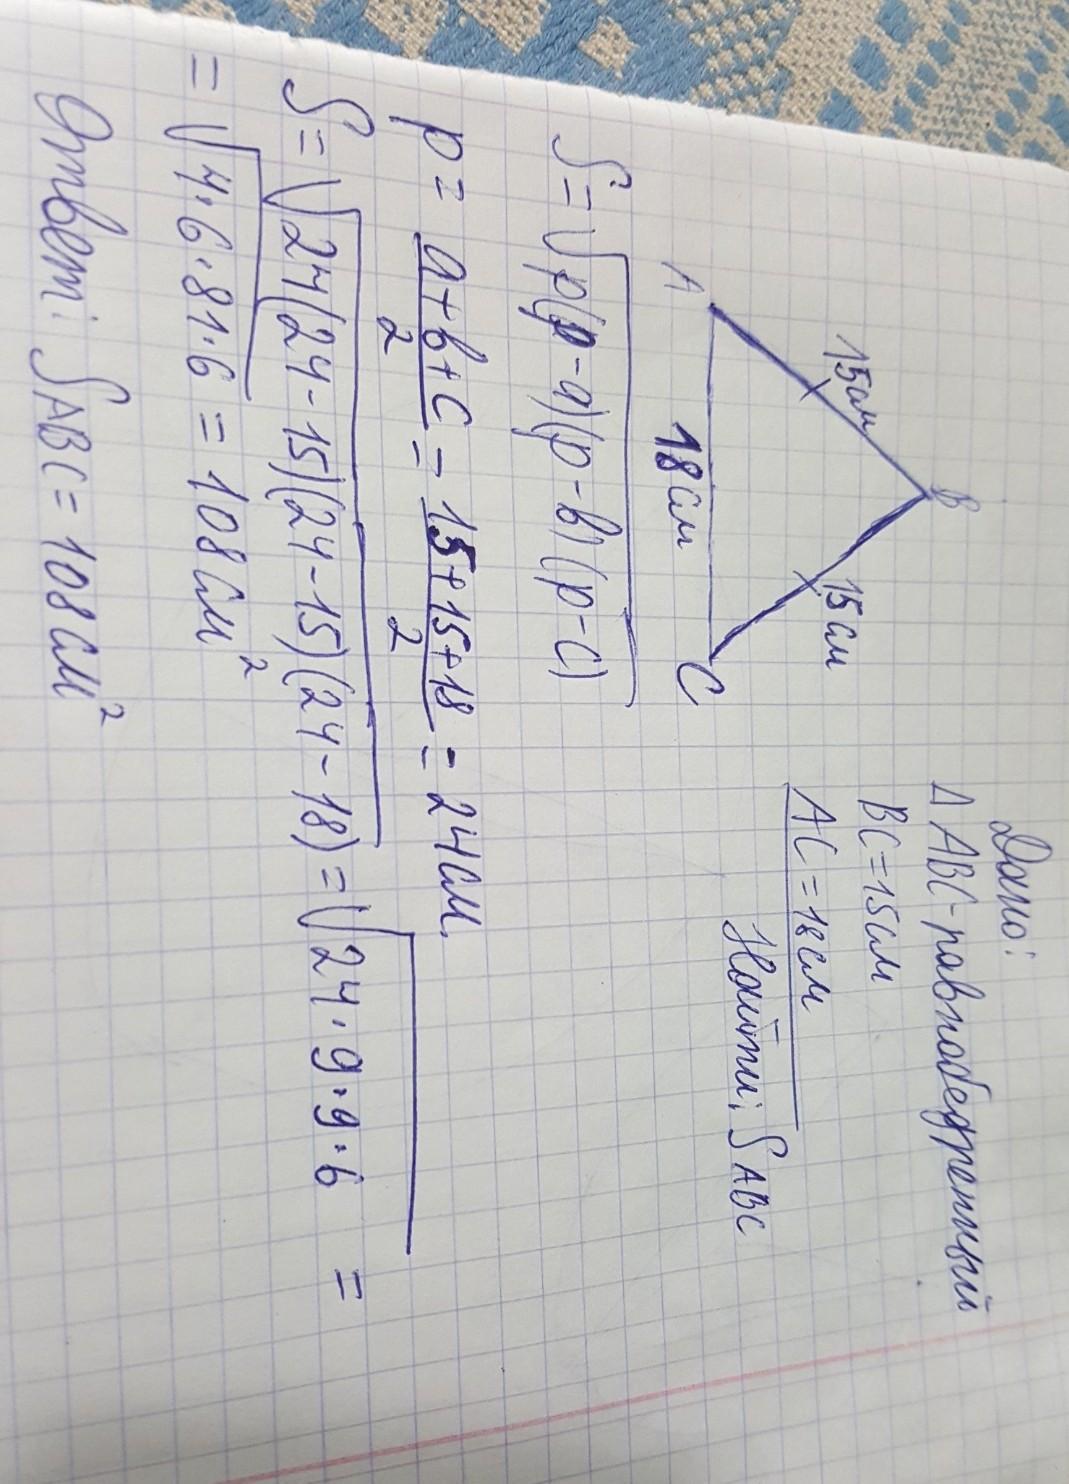 Дано:
Δ ABC-равнобедренный
BC=15см
AC=18см
Найти: S ABC
B
15см
15см
A
18см
C
S=√p(p-a)(p-b)(p-c)
p= a+b+c/2 = 15+15+18/2 = 24см.
S=√24(24-15)(24-15)(24-18)=√24·9·9·6 =
=√4·6·81·6=108см²
Ответ: S ABC=108см²